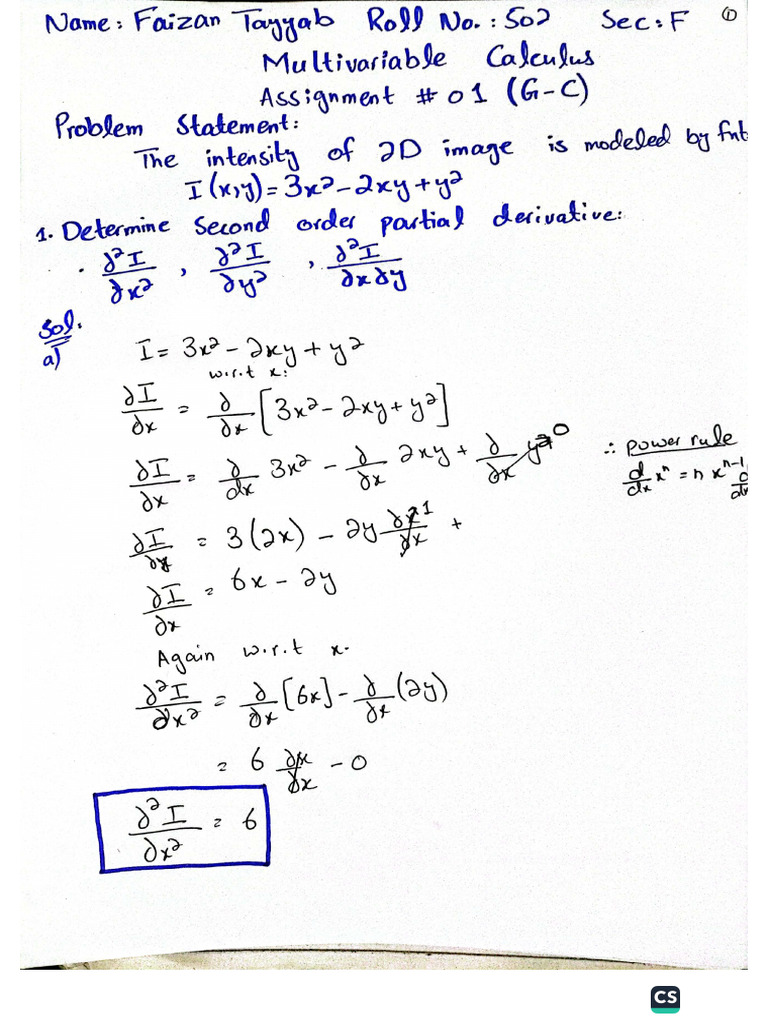 Name: Faizan Tayyab Roll No.: 502 Sec: F ①
Multivariable Calculus
Assignment # 01 (G-C)
Problem Statement:
The intensity of 2D image is modeled by fnt
I(x,y)=3x²-2xy+y²
1. Determine Second order partial derivative:
. ∂²I/∂x² , ∂²I/∂y² , ∂²I/∂x∂y
Sol.
a) I = 3x² - 2xy + y²
w.r.t x:
∂I/∂x = ∂/∂x [3x² - 2xy + y²]
∂I/∂x = ∂/∂x 3x² - ∂/∂x 2xy + ∂/∂x y² 0 ∴ power rule
d/dx xⁿ = n xⁿ⁻¹
∂I/∂x = 3(2x) - 2y ∂x/∂x 1 +
∂I/∂x = 6x - 2y
Again w.r.t x.
∂²I/∂x² = ∂/∂x [6x] - ∂/∂x (2y)
= 6 ∂x/∂x - 0
∂²I/∂x² = 6
CS